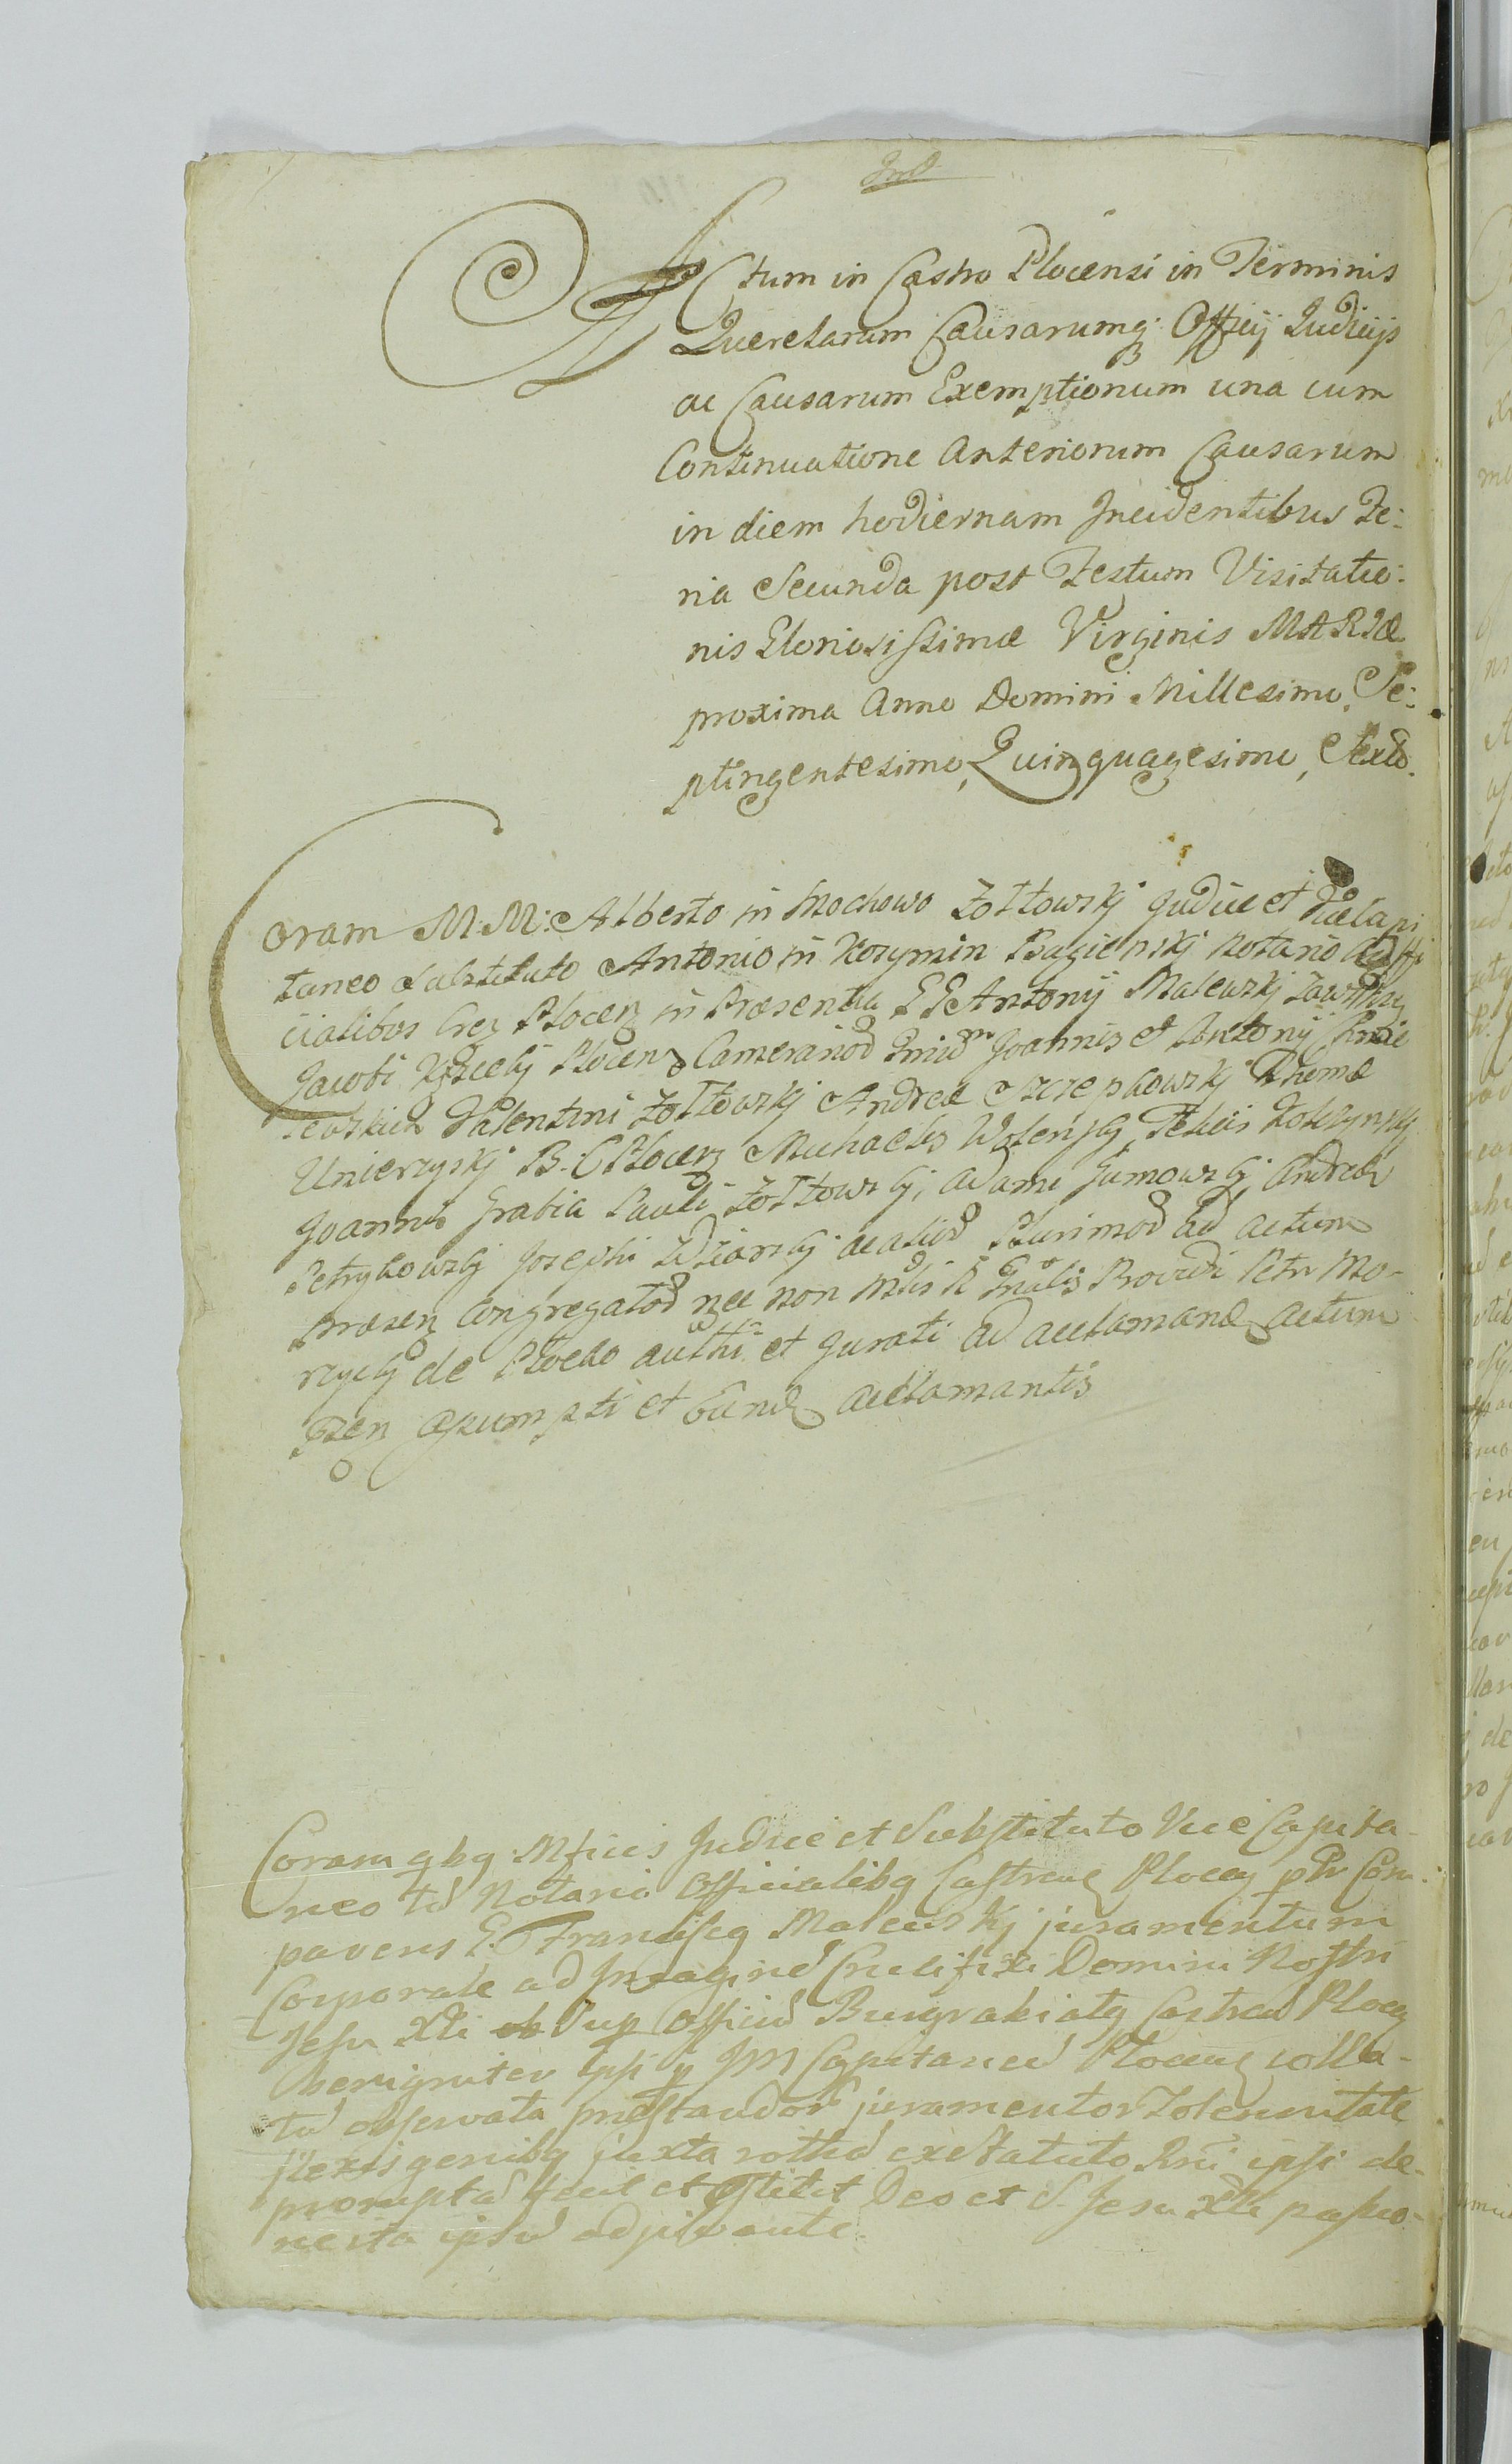 Actum in Castro Plocensi in Terminis
Querelarum Causarumq; Officij Judicijs
ac Causarum Exemptionum una cum
Continuatione Anteriorum Causarum
in diem hodiernam Incidentibus Fe:
ria Secunda post Festum Visitatio:
nis Gloriosissimæ Virginis MARIÆ
proxima Anno Domini Millesimo, Se:
ptingentesimo, Quinquagesimo, Sexto.
Coram M: M: Alberto in Mochowo Zołtowskj Judice et Vicecapi
taneo Substituto Antonio in Kozymin Bagienskj Notario Offi
cialibus Plocen in Præsentia GG Antonij Malewskj
Jacobi Plocen Camerariod Joannis et Antonij
Valentini Zołtowskj Andreæ Szczepkowskj Thomæ
Unierzyskj B: C Plocen Michaelis Felicis
Joannis Grabia Pauli Zołtowskj, Adami Gumowskj, Andreæ
Petrykowskj Josephi ac aliod Plurimod ad actum
præsen congregatod nec non Providi Petri Mo-
rzyckj de Plocko et Jurati ad acclamand actum
pzen assumpti et eund acclamantis
Coram qbq Mficis Judice et Substituto Vice Capita-
neo td Notario Officialibq Castren Plocen pltr Com-
parens G. Franciscq Malewskj juramentum
Corporale ad Imagined Crucifixi Domini Nostri
Jesu Xti sup Officiu Burgrabiatq Castren Plocen
benigniter ipsi p Capitaneu Plocen colla-
tu observata præstandor juramentor Solennitate
flexis genibq juxta rotha ex Statuto Rni ipsi de-
promptad fecit et Deo et S. Jesu Xti passio-
ne ita ipsu adjuvante